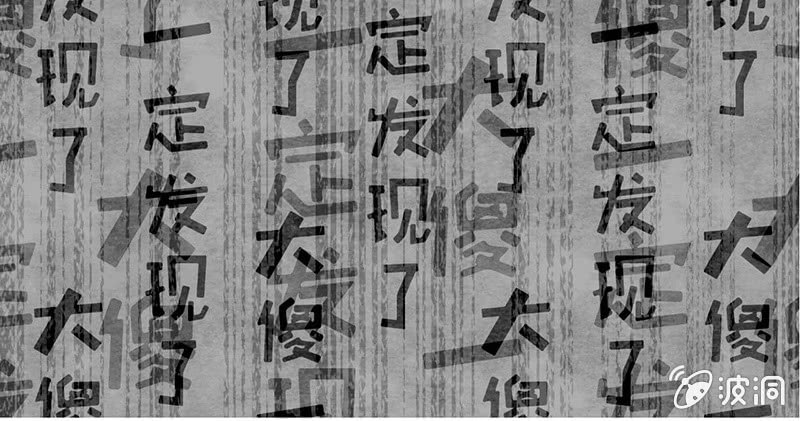 发现了大傻
一定发现了
现了大傻一
定发现了
发现了大傻
一定发现了
现了大傻一
波洞